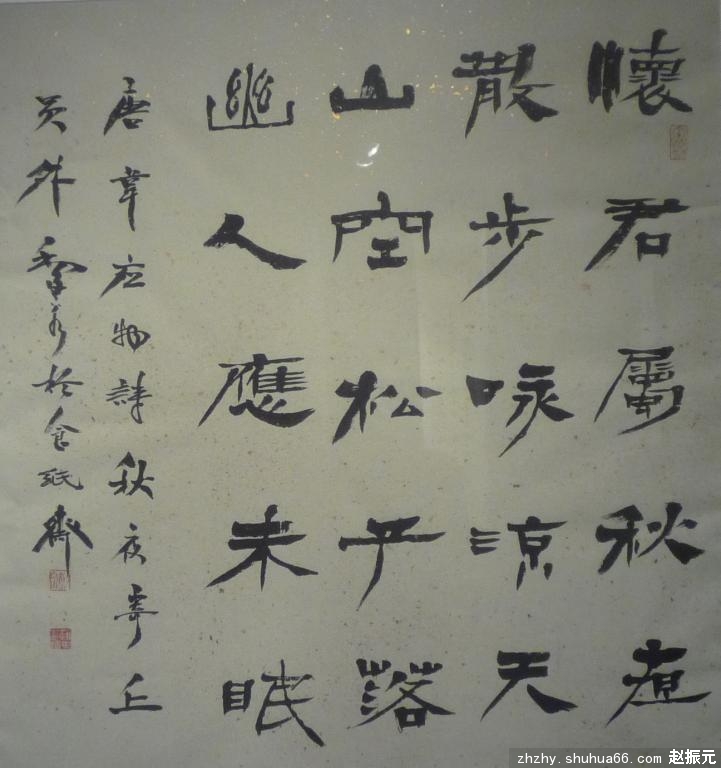 懷君屬秋亱
散步咏涼天
山空松子落
幽人應未眠
唐韋应物詩秋夜寄丘
员外 於食 齋
zhzhy.shuhua66.com 赵振元